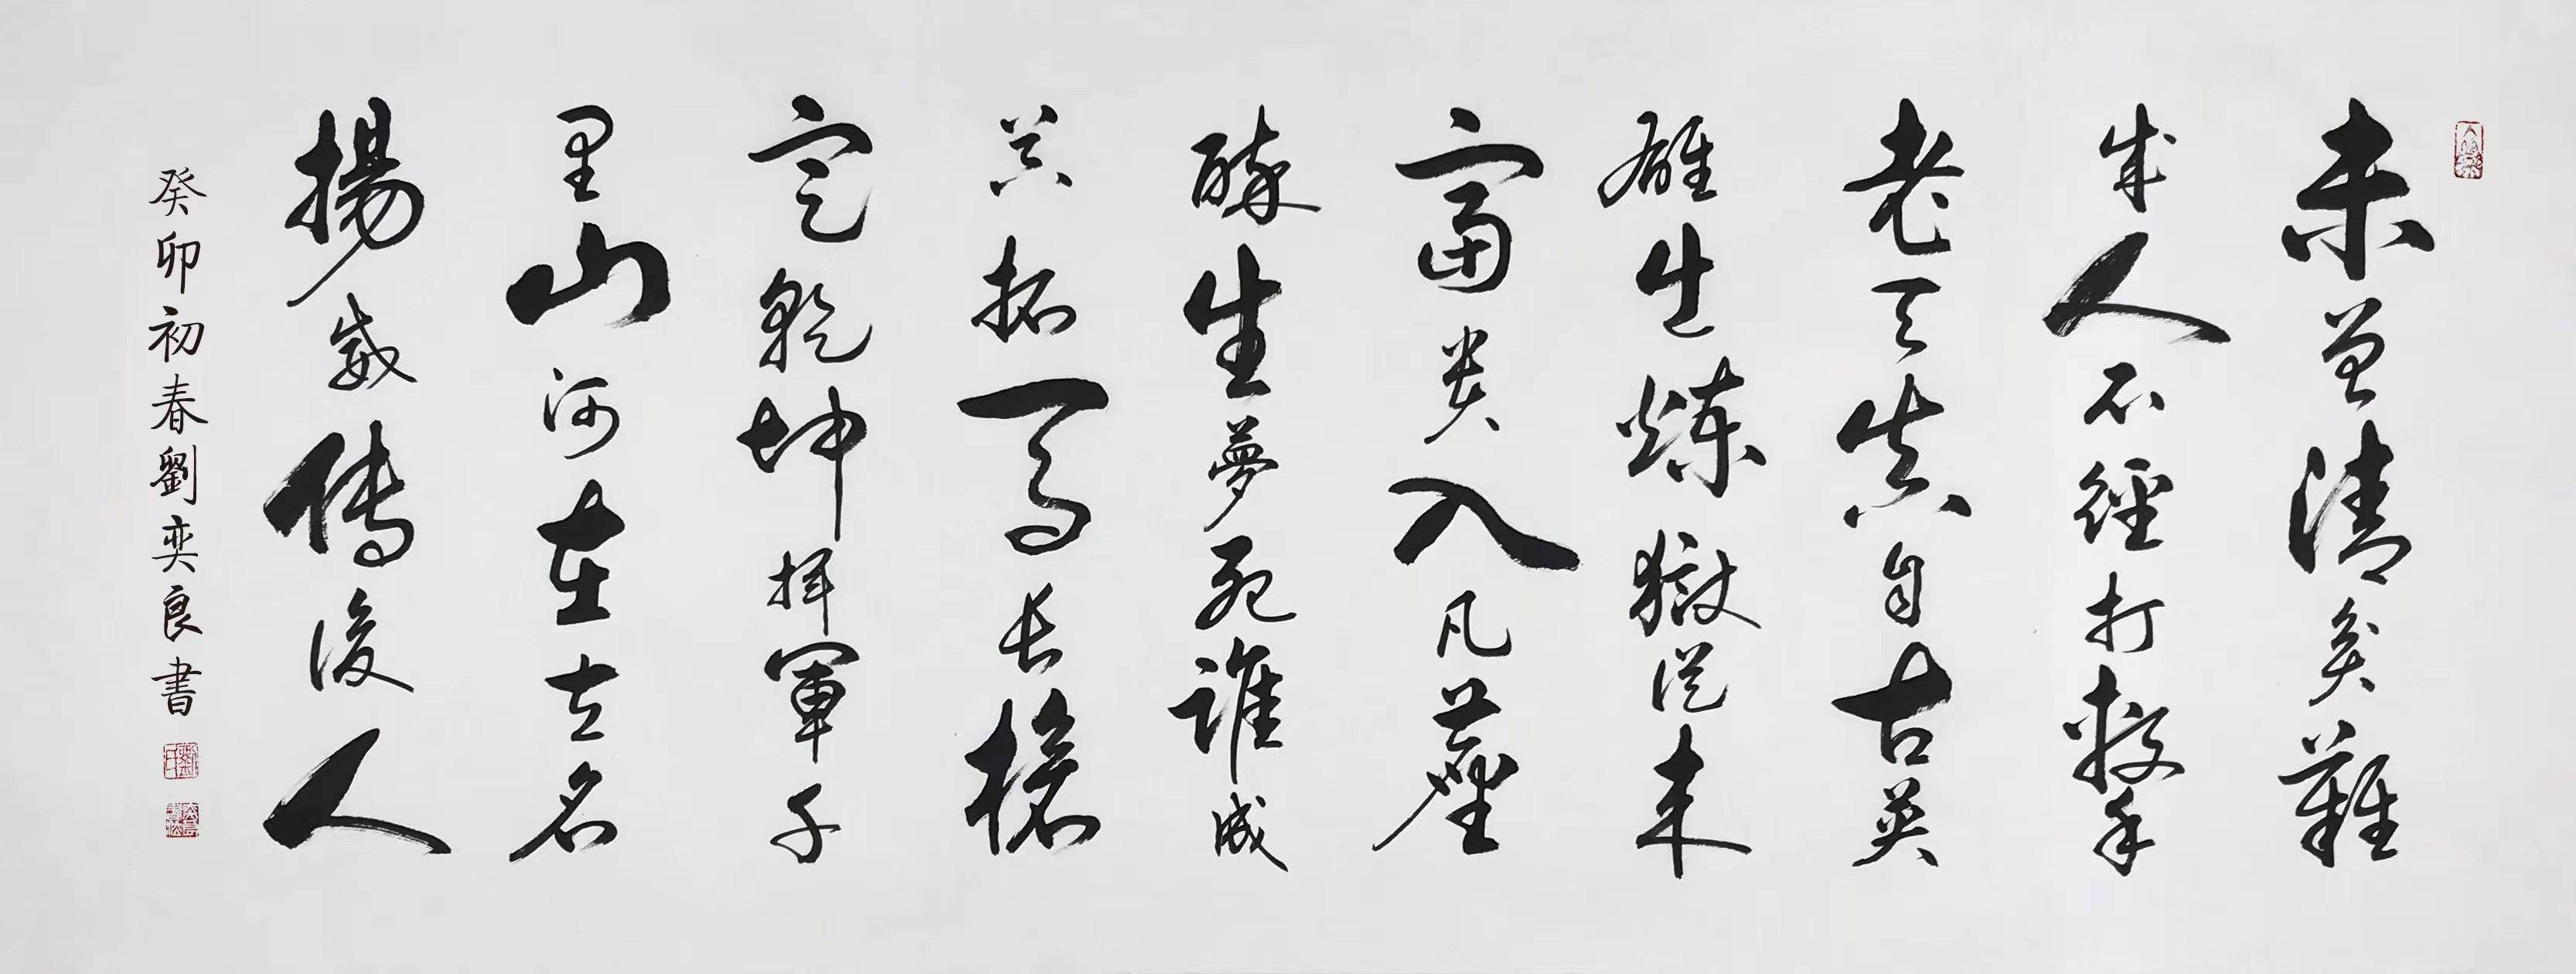 未曾清貧難
成人不經打擊
老天真自古英
雄出煉獄從來
富貴入凡塵
醉生夢死誰成
器拓馬長槍
定乾坤揮軍千
里山河在立名
揚威傳後人
癸卯初春劉奕良書